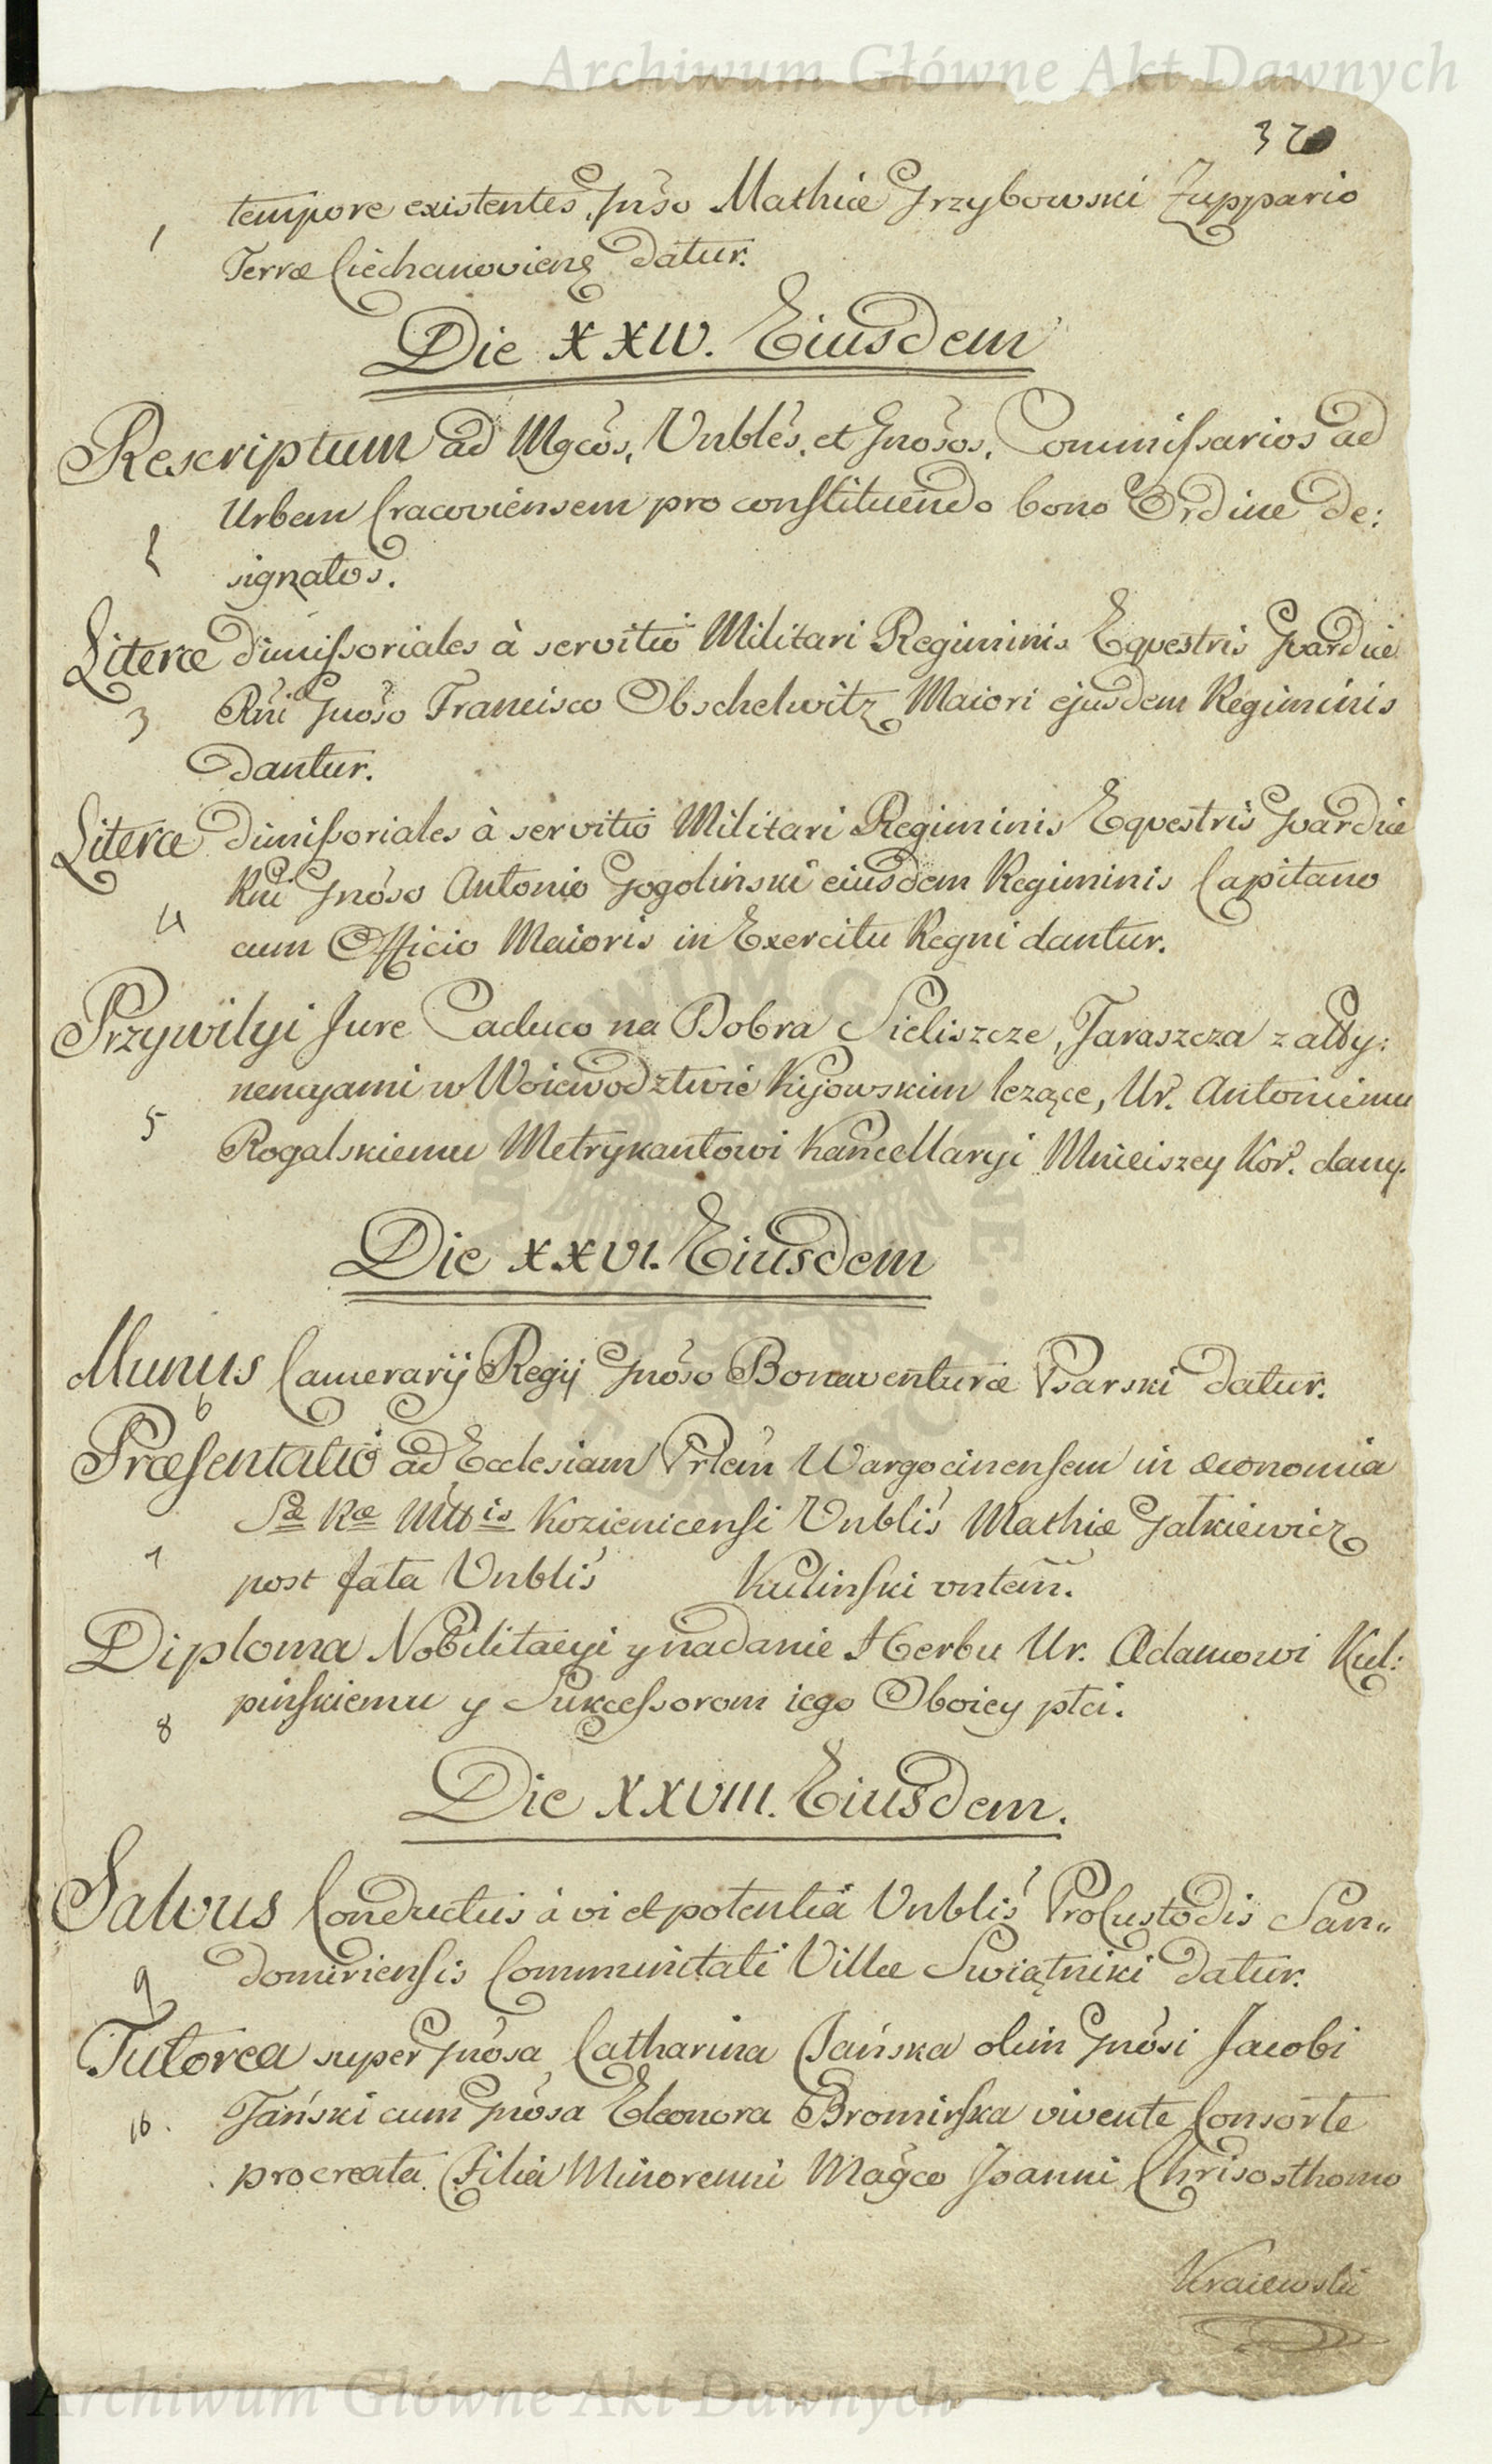 Archiwum Główne Akt Dawnych
320
tempore existentes, Gnoso Mathiæ Grzybowski Zuppario
1
Terræ Ciechanoviens datur.
Die XXIV. Eiusdem
Rescriptum ad Mgcos, Vnbles, et Gnosos, Commissarios ad
Urbem Cracoviensem pro constituendo bono Ordine de:
2 signatos.
Literæ dimissoriales à servitio Militari Regiminis Eqvestris Gvardiæ
3 Rni Gnoso Francisco Obschelwitz Maiori ejusdem Regiminis
dantur.
Literæ dimissoriales à servitio Militari Regiminis Eqvestris Gvardiæ
Rni Gnoso Antonio Gogolinski eiusdem Regiminis Capitano
4 cum Officio Maioris in Exercitu Regni dantur.
Przywilyi Jure Caduco na Dobra Sieliszcze, Taraszcza z atty:
nencyami w Woiewodztwie Kijowskim lezące, Ur. Antoniemu
5 Rogalskiemu Metrykantowi Kancellaryi Mnieiszey Kor. dany.
Die XXVI. Eiusdem
Munus Camerarij Regij Gnoso Bonaventuræ Psarski datur.
6
Præsentatio ad Ecclesiam Prlem Wargocinensem in œconomia
Sæ Ræ Mttis Kozienicensi Vnblis Mathiæ Gatkiewicz
7 post fata Vnblis Kulinski vntem.
Diploma Nobilitacyi y nadanie Herbu Ur. Adamowi Kul:
8 pinskiemu y Sukcessorom iego Oboiey płci.
Die XXVIII. Eiusdem.
Salvus Conductus à vi et potentia Vnblis ProCustodis San„
9 domiriensis Communitati Villæ Swiątniki datur.
Tutorea super Gnosa Catharina Tańska olim Gnosi Jacobi
10. Tański cum Gnosa Eleonora Bromirska vivente Consorte
procreata Filia Minorenni Magco Joanni Chrisosthomo
Kraiewski
Archiwum Główne Akt Dawnych